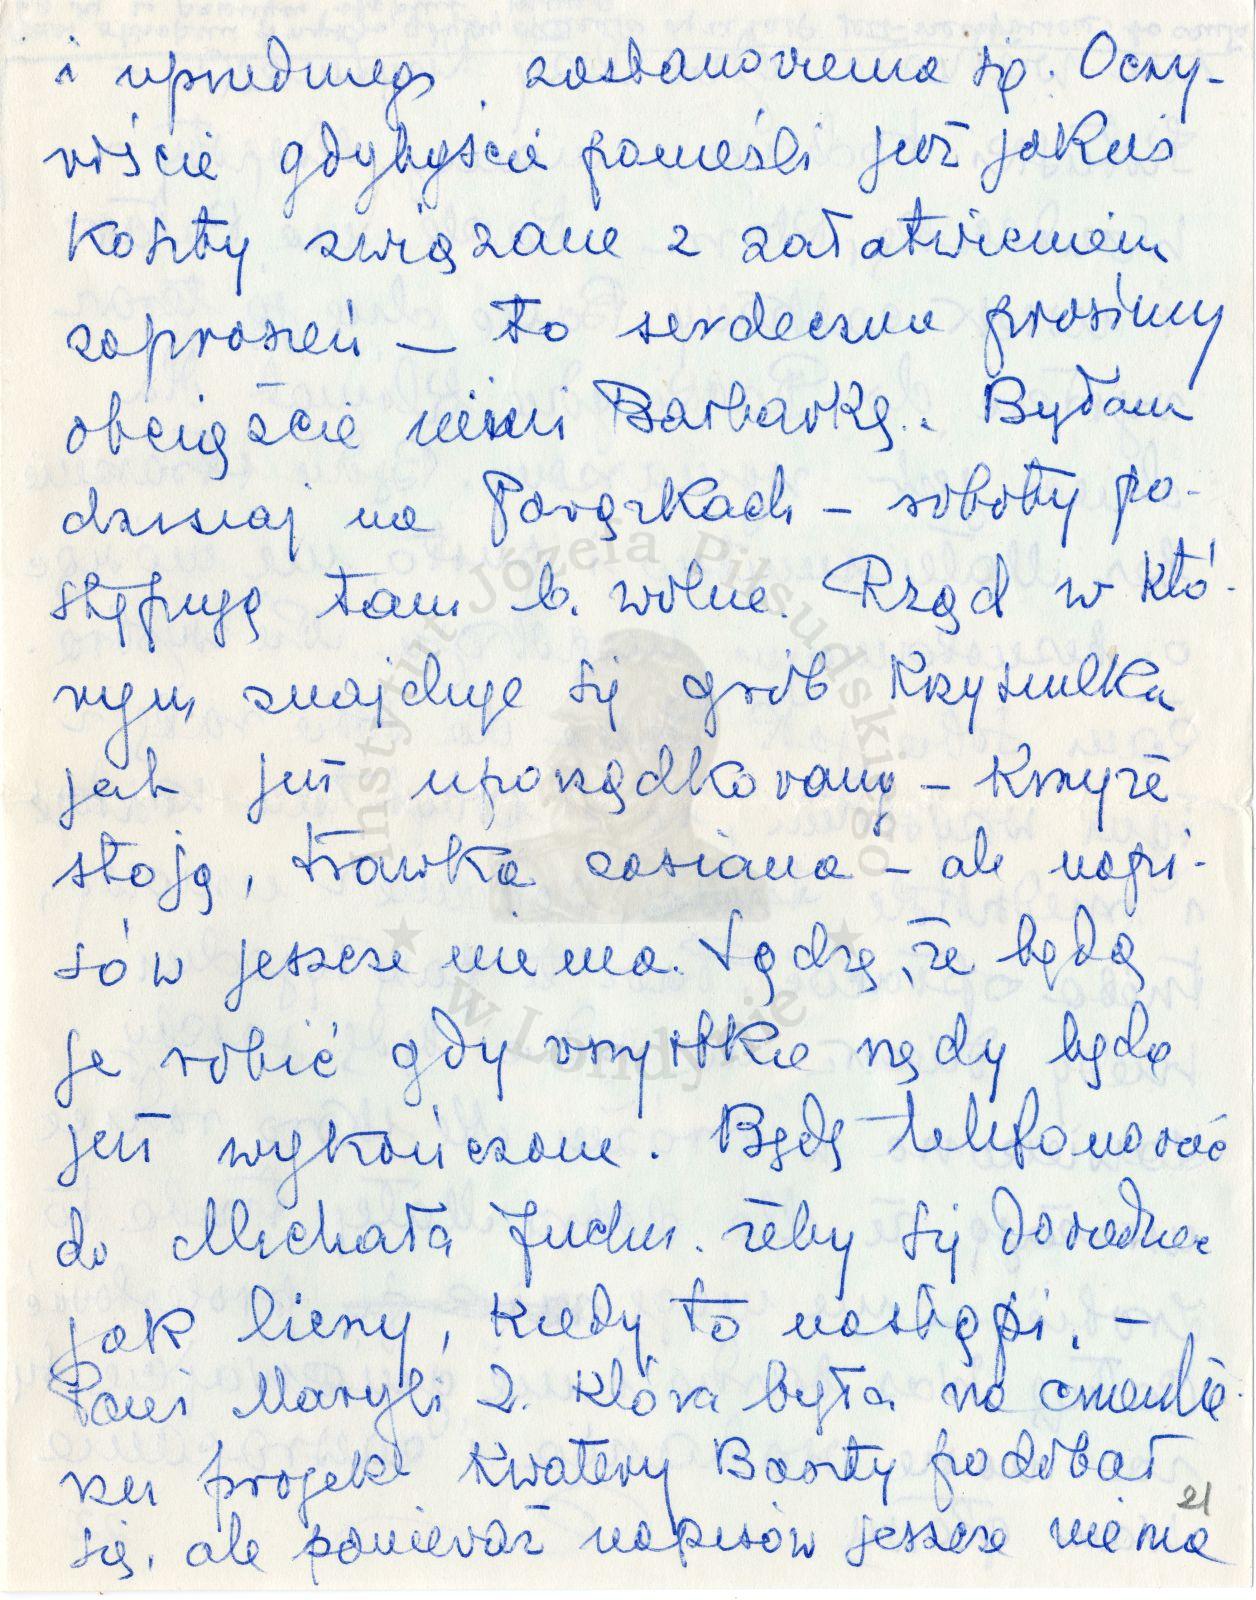 i uprzedniego zastanowienia się. Oczy-
wiście gdybyście ponieśli już jakieś
koszty związane z załatwieniem
zaproszeń – to serdecznie prosimy
obciążcie nimi Barbarkę. Byłam
dzisiaj na Powązkach – roboty po-
stępują tam b. wolno. Rząd w któ-
rym znajduje się grób Krzysiulka
jest już uporządkowany – Krzyże
stoją, trawka zasiana – ale napi-
sów jeszcze niema. Sądzę, że będą
je robić gdy wszystkie rzędy będą
już wykończone. Będę telefonować
do Michała Juchn. żeby się dowiedzieć
jak liczy, kiedy to nastąpi. –
Pani Maryli Z. która była na cmenta-
rzu projekt Kwatery Baszty podobał
się, ale ponieważ napisów jeszcze niema
21
Instytut Józefa Piłsudskiego
w Londynie